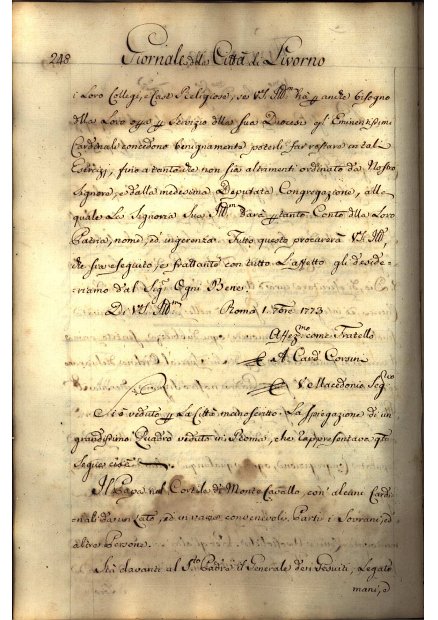 248 Giornale della Città di Livorno
i Loro Collegi, e Case Religiose, se V.S. Ill.m anche bisogno
della Loro per servizio della sua Diocesi gl' Eminentissimi
Cardinali concedono benignamente poterli far restare in tali
Esercizj, fino a tanto che non sia altrimenti ordinato da Nostro
Signore, e dalla medesima Deputata Congregazione, alle
quale La Signoria Sua Ill.m darà per tanto Conto della Loro
Patria, nome, ed ingerenza. Tutto questo procurerà V.S. Ill.
che sia eseguito, e frattanto con tutto L'affetto gli deside-
riamo dal Sig.e Ogni Bene.
Di V.S. Ill.m Roma 1. 7bre 1773
Affez.mo come Fratello
A. Card. Corsini
V. e Macedonio Seg.rio
Si è veduto per La Città manoscritto La spiegazione di un
grandissimo Quadro veduto in Roma, che rappresentava q.to
segue cioè
Il Papa nel Cortile di Monte Cavallo, con' alcuni Cardi-
nali da un Lato, ed in varie convenevoli Parti i Sovrani, ed
altre Persone.
Stà davanti al S.to Padre il Generale de i Gesuiti, Legato
mani, e